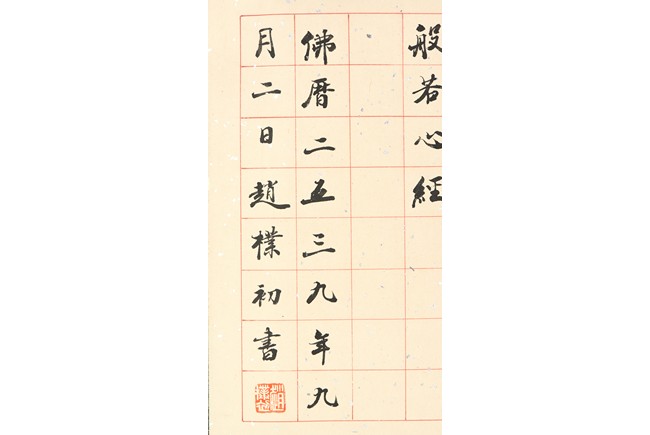 般若心經
佛曆二五三九年九
月二日趙樸初書